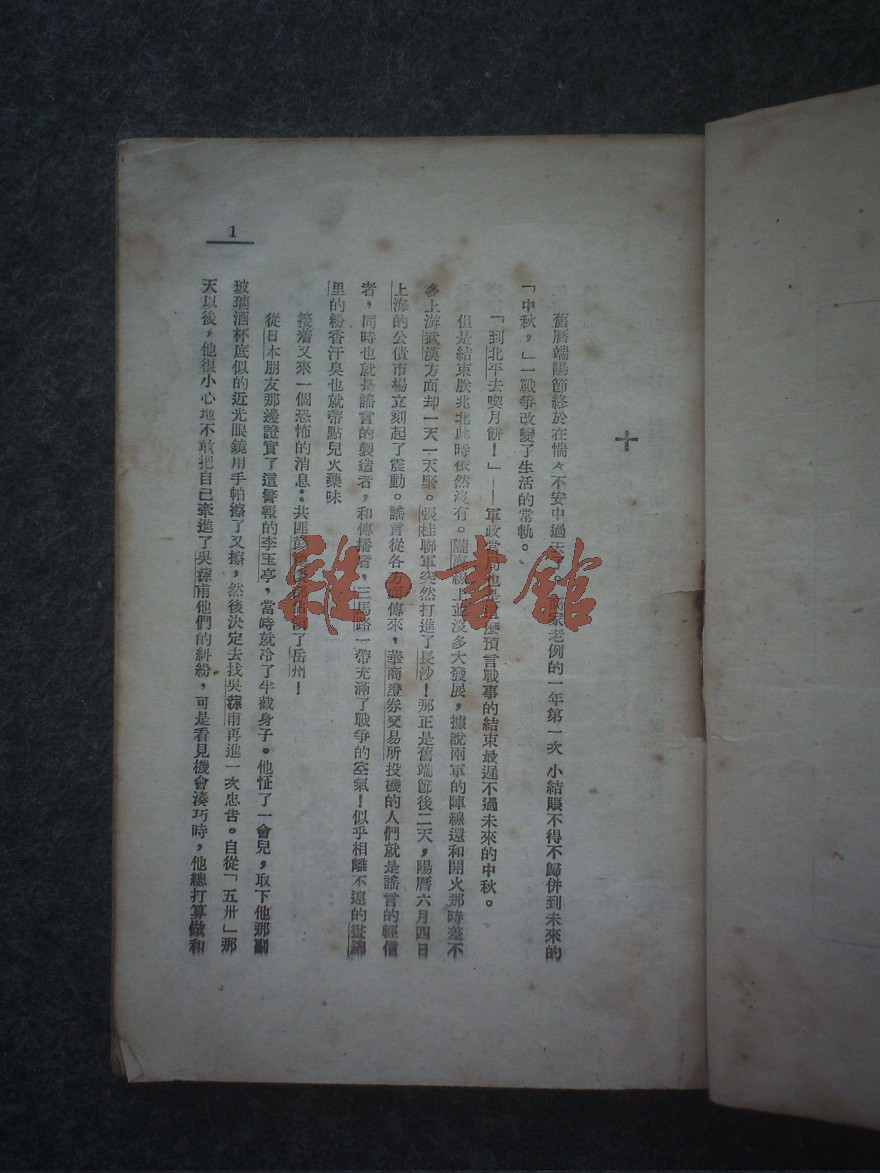 十
舊曆端陽節終於在惴々不安中過去 家老例的一年第一次 小結賬不得不歸併到未來的
「中秋，」一戰爭改變了生活的常軌。
「到北平去喫月餅！」——軍政當局也是 麼預言戰事的結束最遲不過未來的中秋。
但是結束朕兆北此時依然沒有。隴海線上並沒多大發展，據說兩軍的陣線還和開火那時差不
多上游武漢方面却一天一天緊。張桂聯軍突然打進了長沙！那正是舊端節後二天，陽曆六月四日
上海的公債市場立刻起了震動。謠言從各方面傳來，華商證券交易所投機的人們就是謠言的輕信
者，同時也就是謠言的製造者，和傳播者，三馬路一帶充滿了戰爭的空氣！似乎相離不遠的晝錦
里的粉香汗臭也就帶點兒火藥味
接着又來一個恐怖的消息：共匪 了岳州！
從日本朋友那邊證實了這警報的李玉亭，當時就冷了半截身子。他怔了一會兒，取下他那副
玻璃酒杯底似的近光眼鏡用手帕擦了又擦，然後決定去找吳蓀甫再進一次忠告。自從「五卅」那
天以後，他很小心地不敢把自己牽進了吳蓀甫他們的糾紛，可是看見機會湊巧時，他總打算做和
1
雜·書館